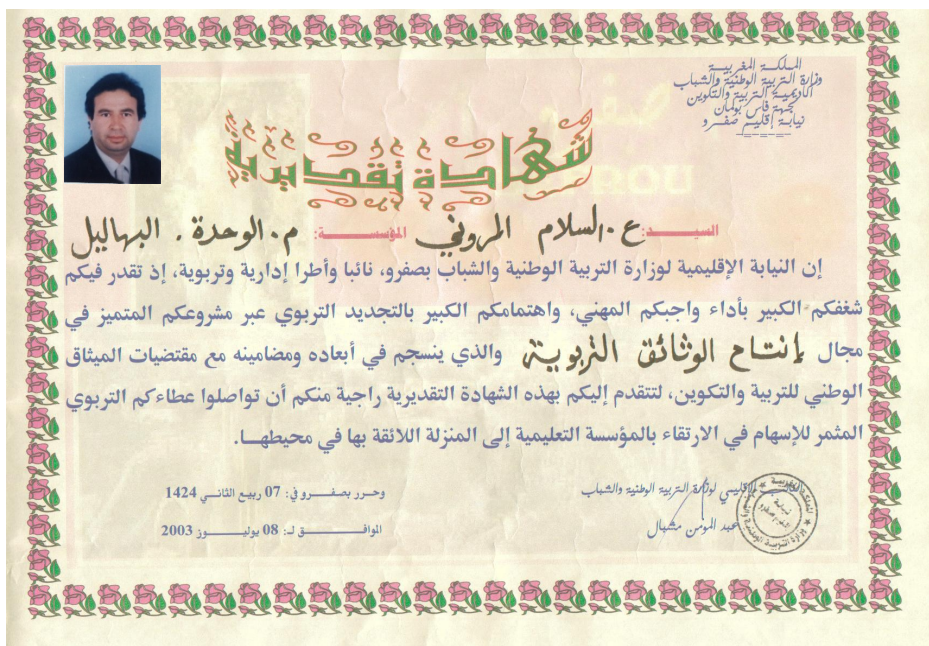 المملكة المغربية
وزارة التربية الوطنية والشباب
أكاديمية التربية والتكوين
لجهة فاس بولمان
نيابة إقليم صفرو
شهادة تقديرية
السيد: ع. السلام المروني المؤسسة: م. الوحدة. البهاليل
إن النيابة الإقليمية لوزارة التربية الوطنية والشباب بصفرو، نائبا وأطرا إدارية وتربوية، إذ تقدر فيكم
شغفكم الكبير بأداء واجبكم المهني، واهتمامكم الكبير بالتجديد التربوي عبر مشروعكم المتميز في
مجال إنتاج الوثائق التربوية والذي ينسجم في أبعاده ومضامينه مع مقتضيات الميثاق
الوطني للتربية والتكوين، لتتقدم إليكم بهذه الشهادة التقديرية راجية منكم أن تواصلوا عطاءكم التربوي
المثمر للإسهام في الارتقاء بالمؤسسة التعليمية إلى المنزلة اللائقة بها في محيطها.
وحرر بصفرو في: 07 ربيع الثاني 1424
الموافق لـ: 08 يوليوز 2003
النائب الإقليمي لوزارة التربية الوطنية والشباب
عبد المومن مشبال